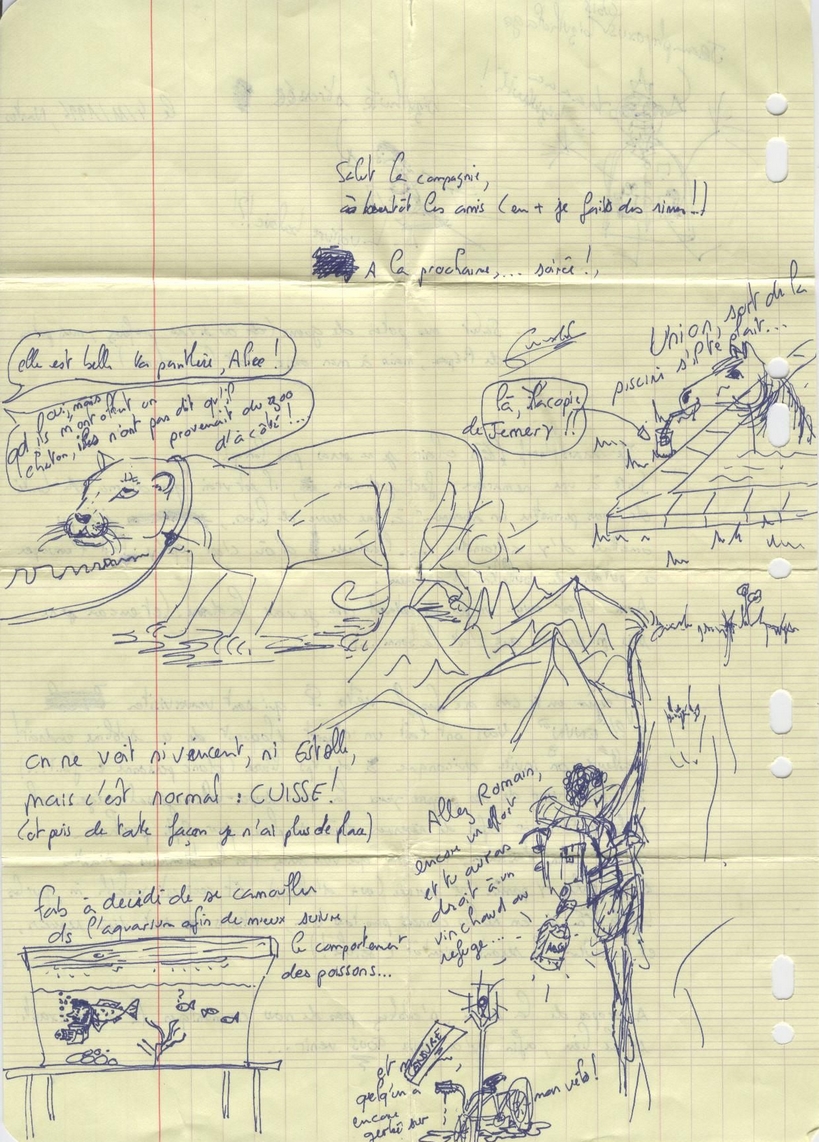 Salut la compagnie,
à bientôt les amis (en + je fais des rimes!!)
A la prochaine,... soirée!,
elle est belle ta panthère, Alice!
oui, mais
qd ils m'ont offert un
chaton, ils n'ont pas dit qu'il
provenait du zoo
d'à côté!...
là, placopie
de Jemery!!
Union, sort de la
piscine s'il te plait...
on ne voit ni vincent, ni Estelle,
mais c'est normal : CUISSE!
(et puis de toute façon je n'ai plus de place)
Allez Romain,
encore un effort
et tu auras
droit à un
vin chaud au
refuge...
fab à décidé de se camoufler
ds l'aquarium afin de mieux suivre
le comportement
des poissons...
?
et
quelqu'un a
encore
gerbé sur
mon vélo!